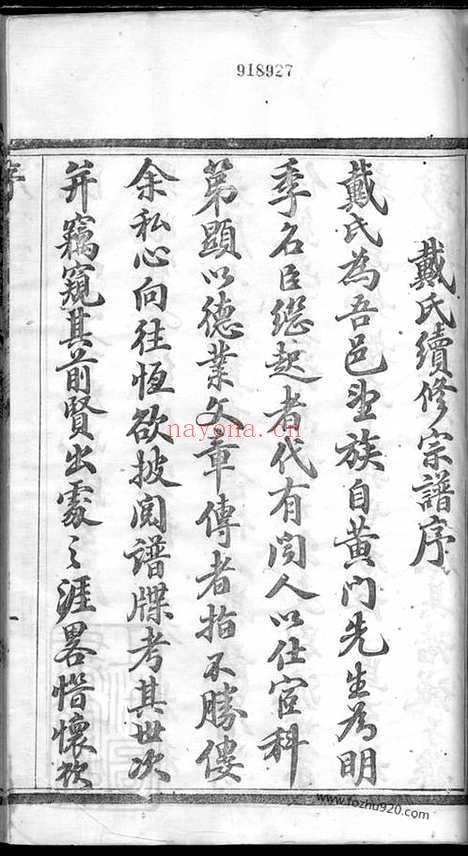 918927
戴氏續修宗譜序
戴氏為吾邑望族自黃门先生為明
季名臣繼起者代有闻人以仕宦科
第顯以德業文章傳者指不勝僂
余私心向往恆欲披阅譜牒考其世次
并竊窺其前賢出處之涯畧惜懷欲
nayona.cn
www.fozhu920.com